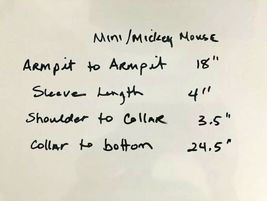 Mini/Mickey Mouse
Armpit to Armpit 18"
Sleeve Length 4"
Shoulder to Collar 3.5"
Collar to bottom 24.5"